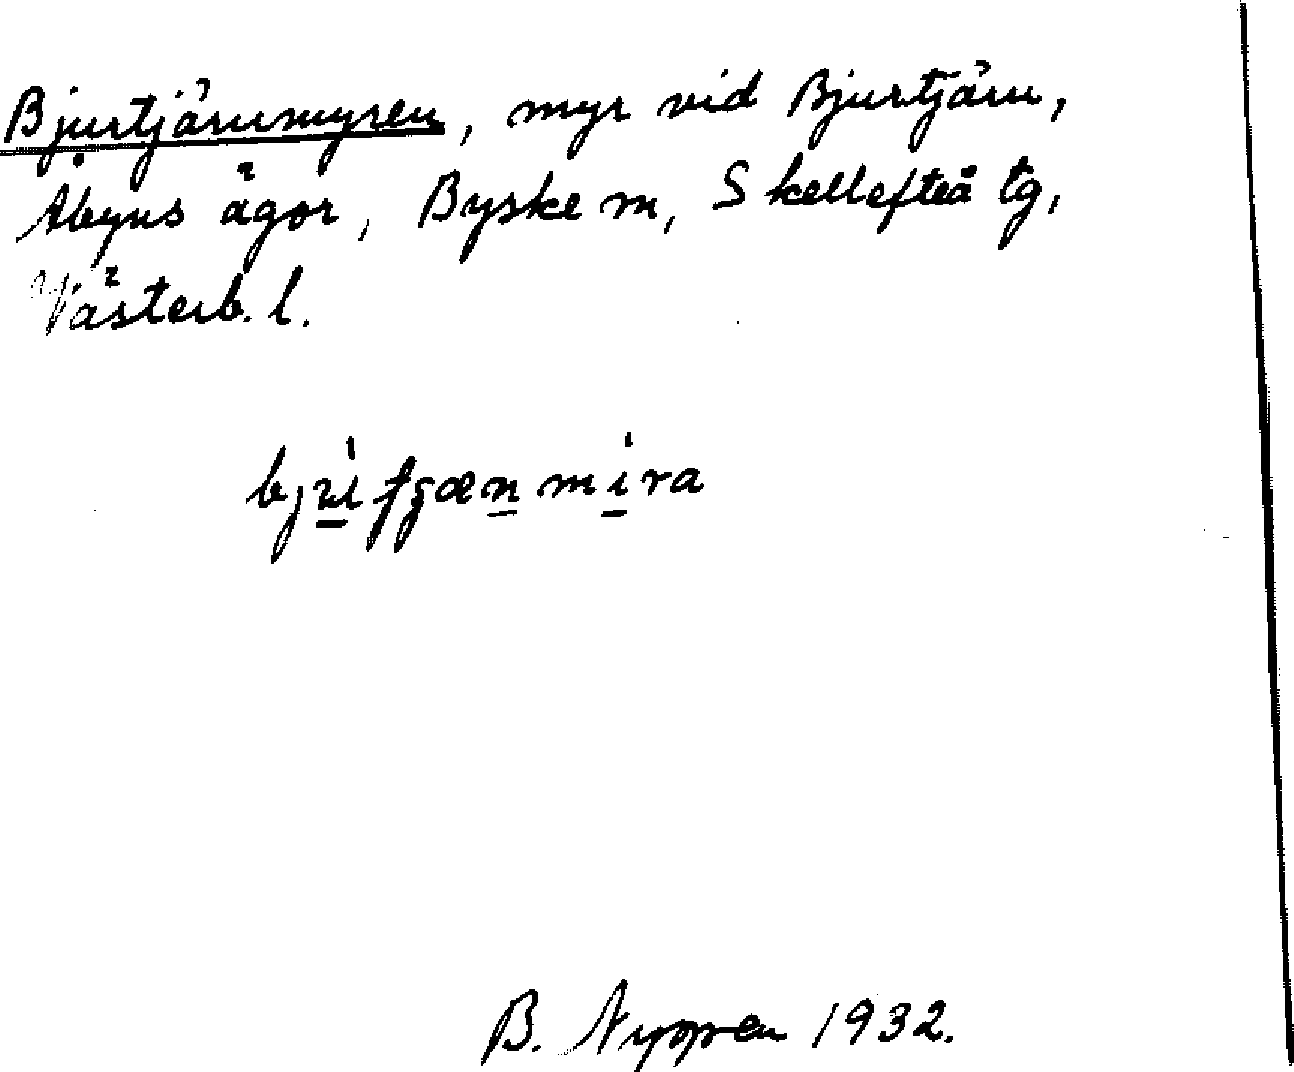 Bjurtjärnmyren, myr vid Bjurtjärn,
Åbyns ägor, Byske sn, Skellefteå tg,
Västerb. l.
B. Nyppen 1932.